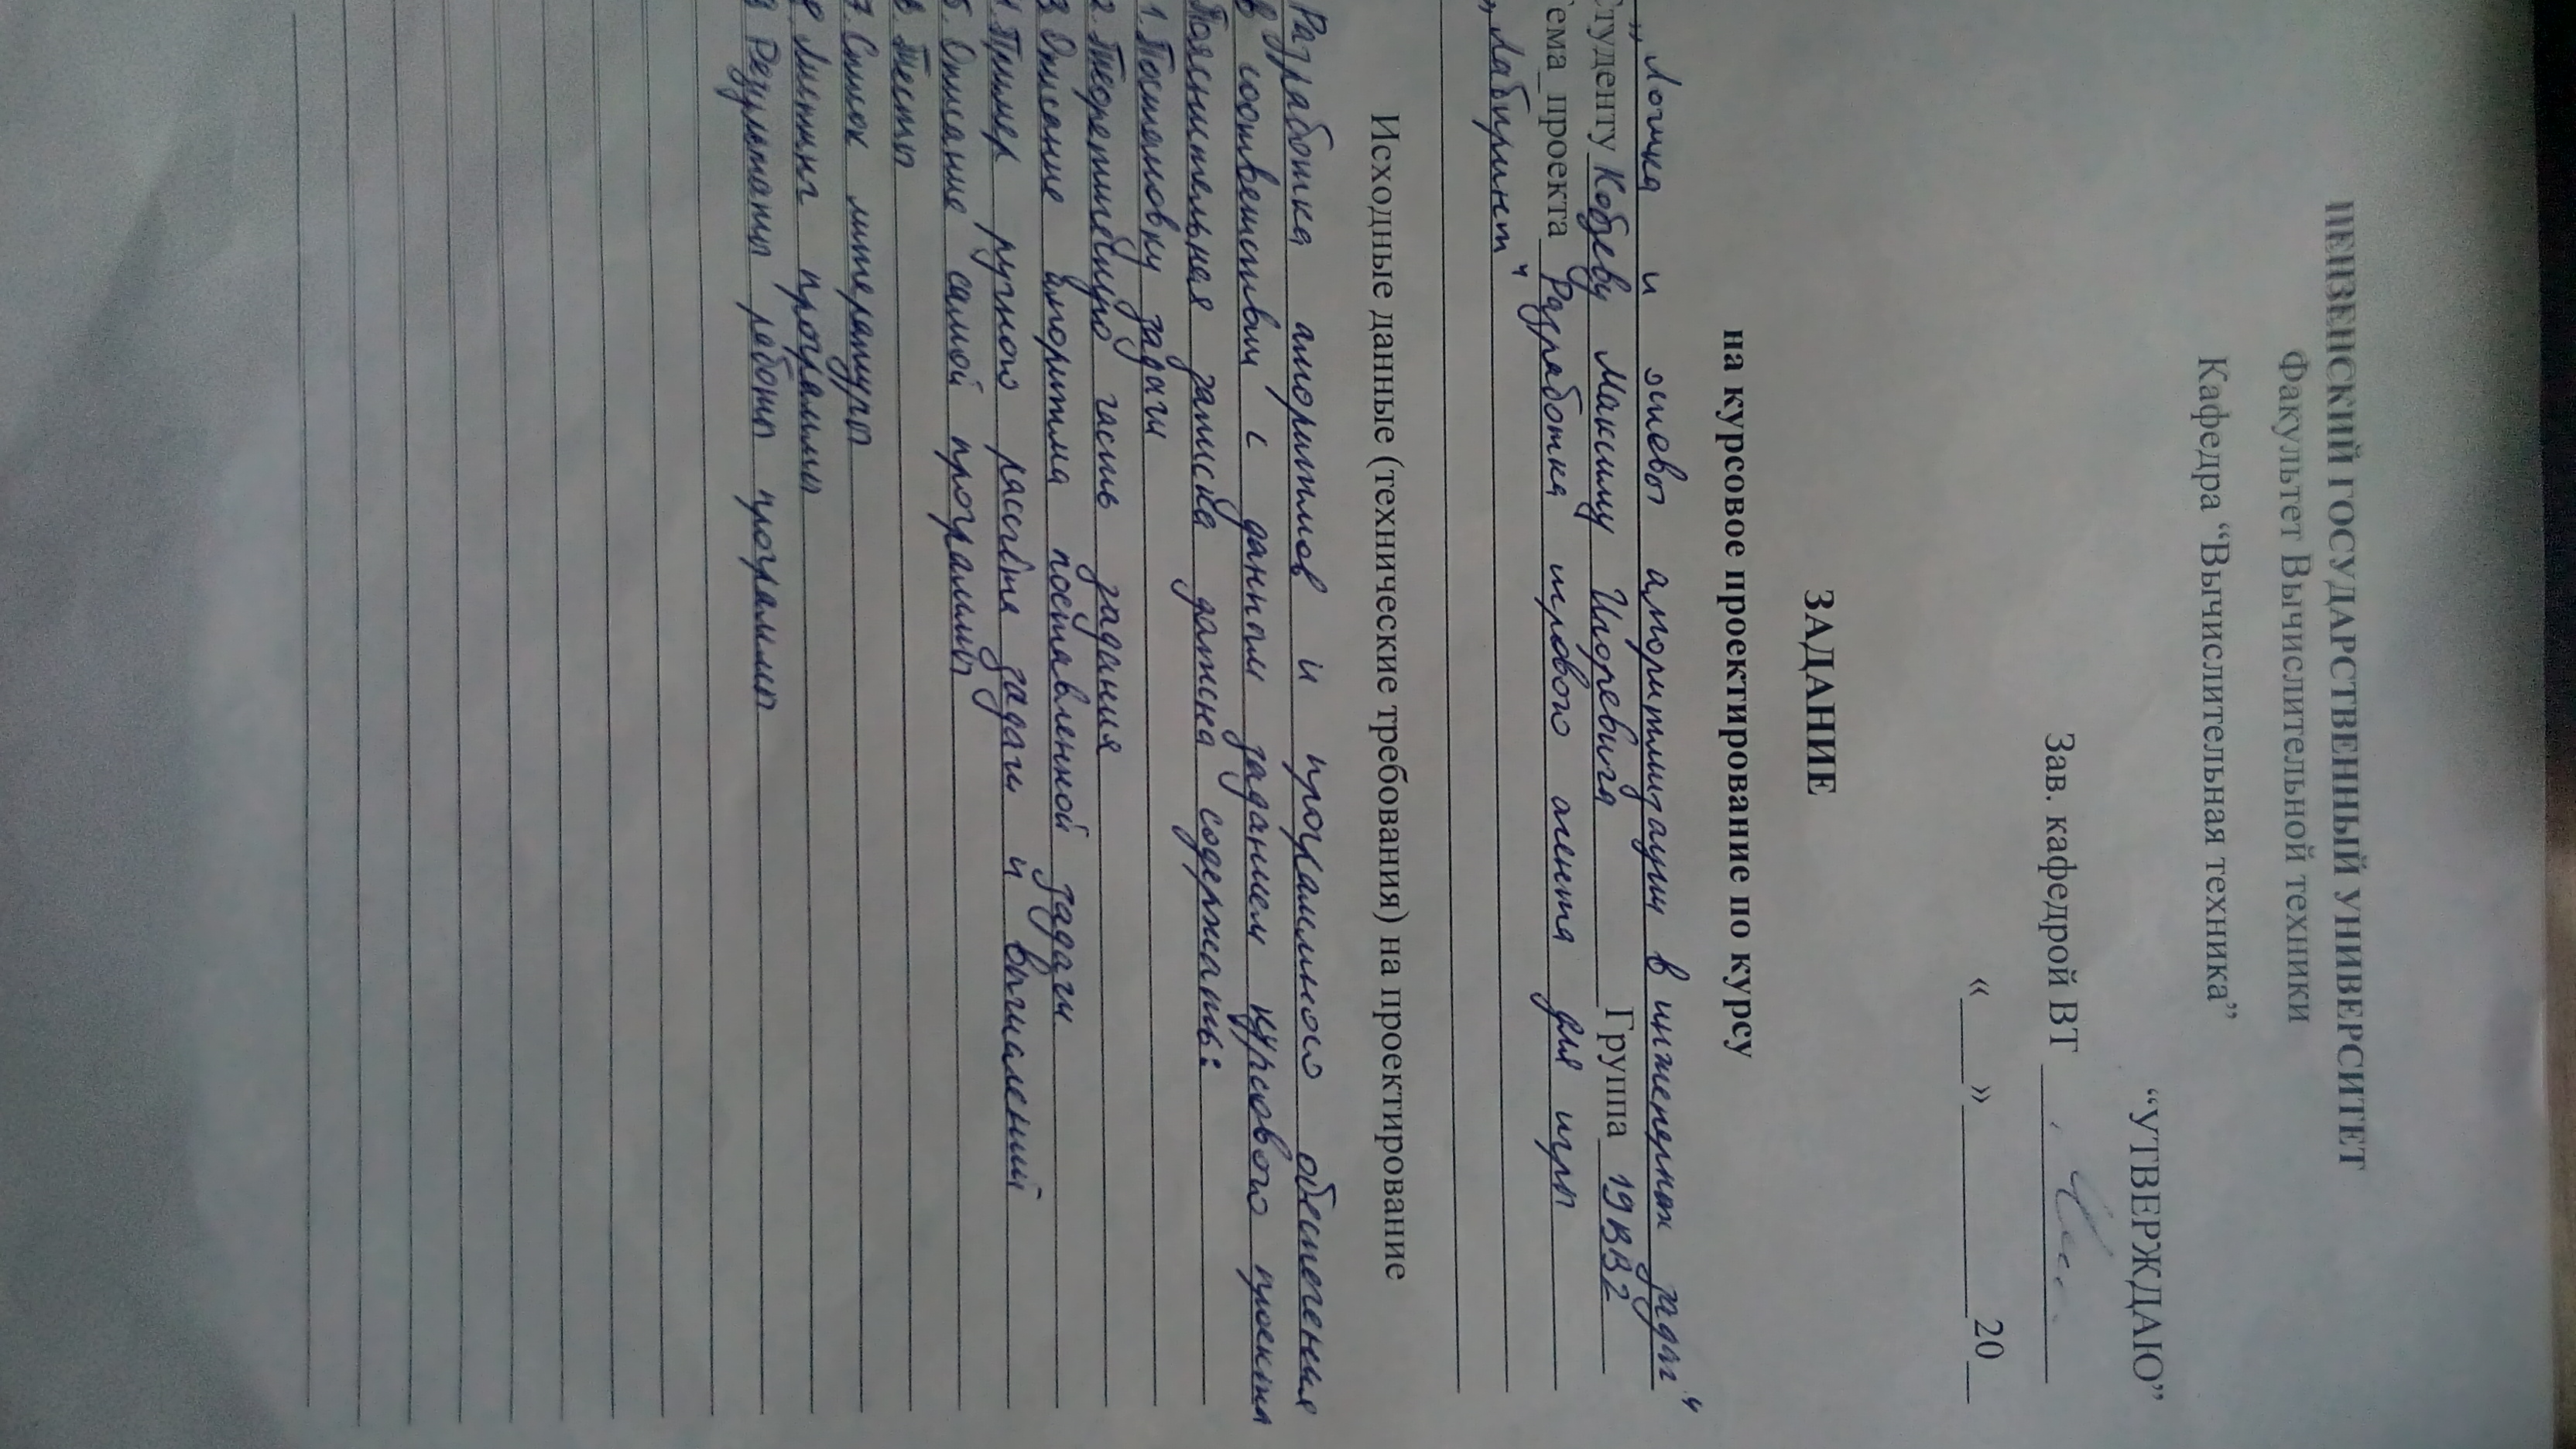 ПЕНЗЕНСКИЙ ГОСУДАРСТВЕННЫЙ УНИВЕРСИТЕТ
Факультет Вычислительной техники
Кафедра “Вычислительная техника”
“УТВЕРЖДАЮ”
Зав. кафедрой ВТ
«___»__________20__
ЗАДАНИЕ
на курсовое проектирование по курсу
„Логика и основы алгоритмизации в инженерных задач“
Студенту Кобзеву Максиму Игоревичу Группа 19ВВ2
Тема проекта Разработка игрового агента для игры
„Лабиринт“
Исходные данные (технические требования) на проектирование
Разработка алгоритмов и программного обеспечения
в соответствии с данным заданием курсового проекта
Пояснительная записка должна содержать:
1. Постановку задачи
2. Теоретическую часть задания
3 Описание алгоритма поставленной задачи
4 Пример ручного расчёта задачи и вычислений
5. Описание самой программы
6 Тесты
7. Список литературы
8 Листинг программы
9 Результаты работы программы